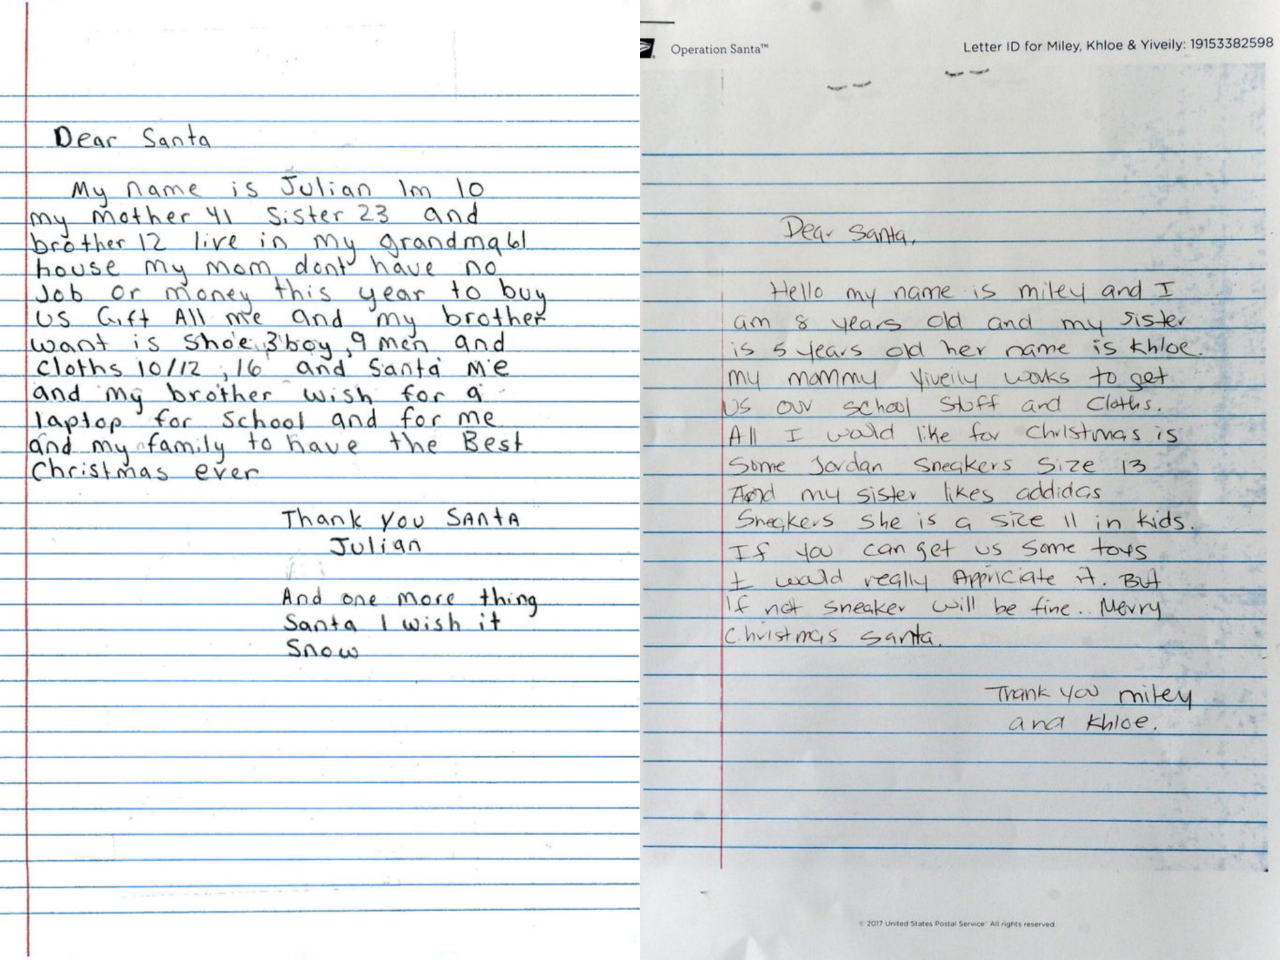 Dear Santa
My name is Julian Im 10
my mother 41 Sister 23 and
brother 12 live in my grandma 61
house my mom dont have no
Job or money this year to buy
us Gift All me and my brother
want is Shoe, 3 boy, 9 men and
cloths 10/12, 16 and Santa me
and my brother wish for a
laptop for School and for me
and my family to have the Best
Christmas ever
Thank you SANTA
Julian
And one more thing
Santa I wish it
Snow
Operation Santa™
Letter ID for Miley, Khloe & Yiveily: 19153382598
Dear Santa,
Hello my name is miley and I
am 8 years old and my sister
is 5 years old her name is Khloe.
My mommy Yiveily works to get
us our school stuff and Cloths.
All I would like for Christmas is
Some Jordan Sneakers Size 13
And my sister likes addidas
Sneakers she is a size 11 in kids.
If you can get us some toys
I would really Appriciate it. But
If not sneaker will be fine. Merry
Christmas Santa.
Thank you miley
and Khloe.
© 2017 United States Postal Service® All rights reserved.